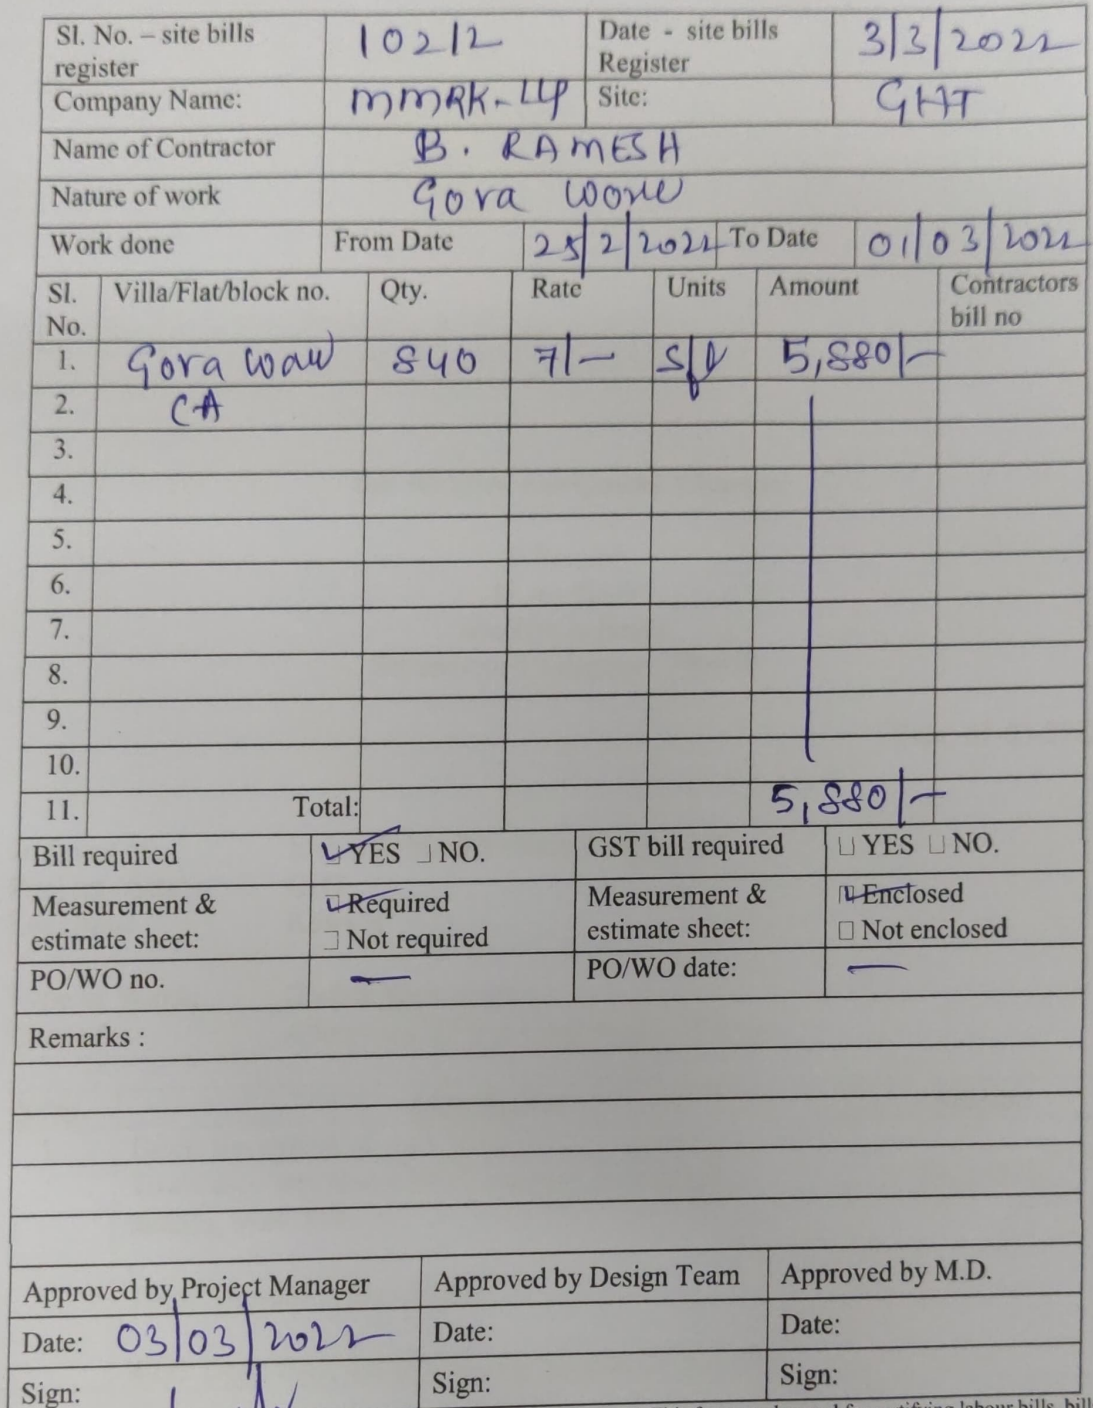 Sl. No. – site bills register 10212 Date - site bills Register 3/3/2022
Company Name: MMRK-LLP Site: GHT
Name of Contractor B. RAMESH
Nature of work Gova work
Work done From Date 25/2/2022 To Date 01/03/2022
Sl. No. Villa/Flat/block no. Qty. Rate Units Amount Contractors bill no
1. Gova 840 7/- 5,880/-
2. CA
3.
4.
5.
6.
7.
8.
9.
10.
11. Total: 5,880/-
Bill required YES NO. GST bill required YES NO.
Measurement & estimate sheet: Required Not required Measurement & estimate sheet: Enclosed Not enclosed
PO/WO no. — PO/WO date: —
Remarks :
Approved by Project Manager Approved by Design Team Approved by M.D.
Date: 03/03/2022 Date: Date:
Sign: Sign: Sign: